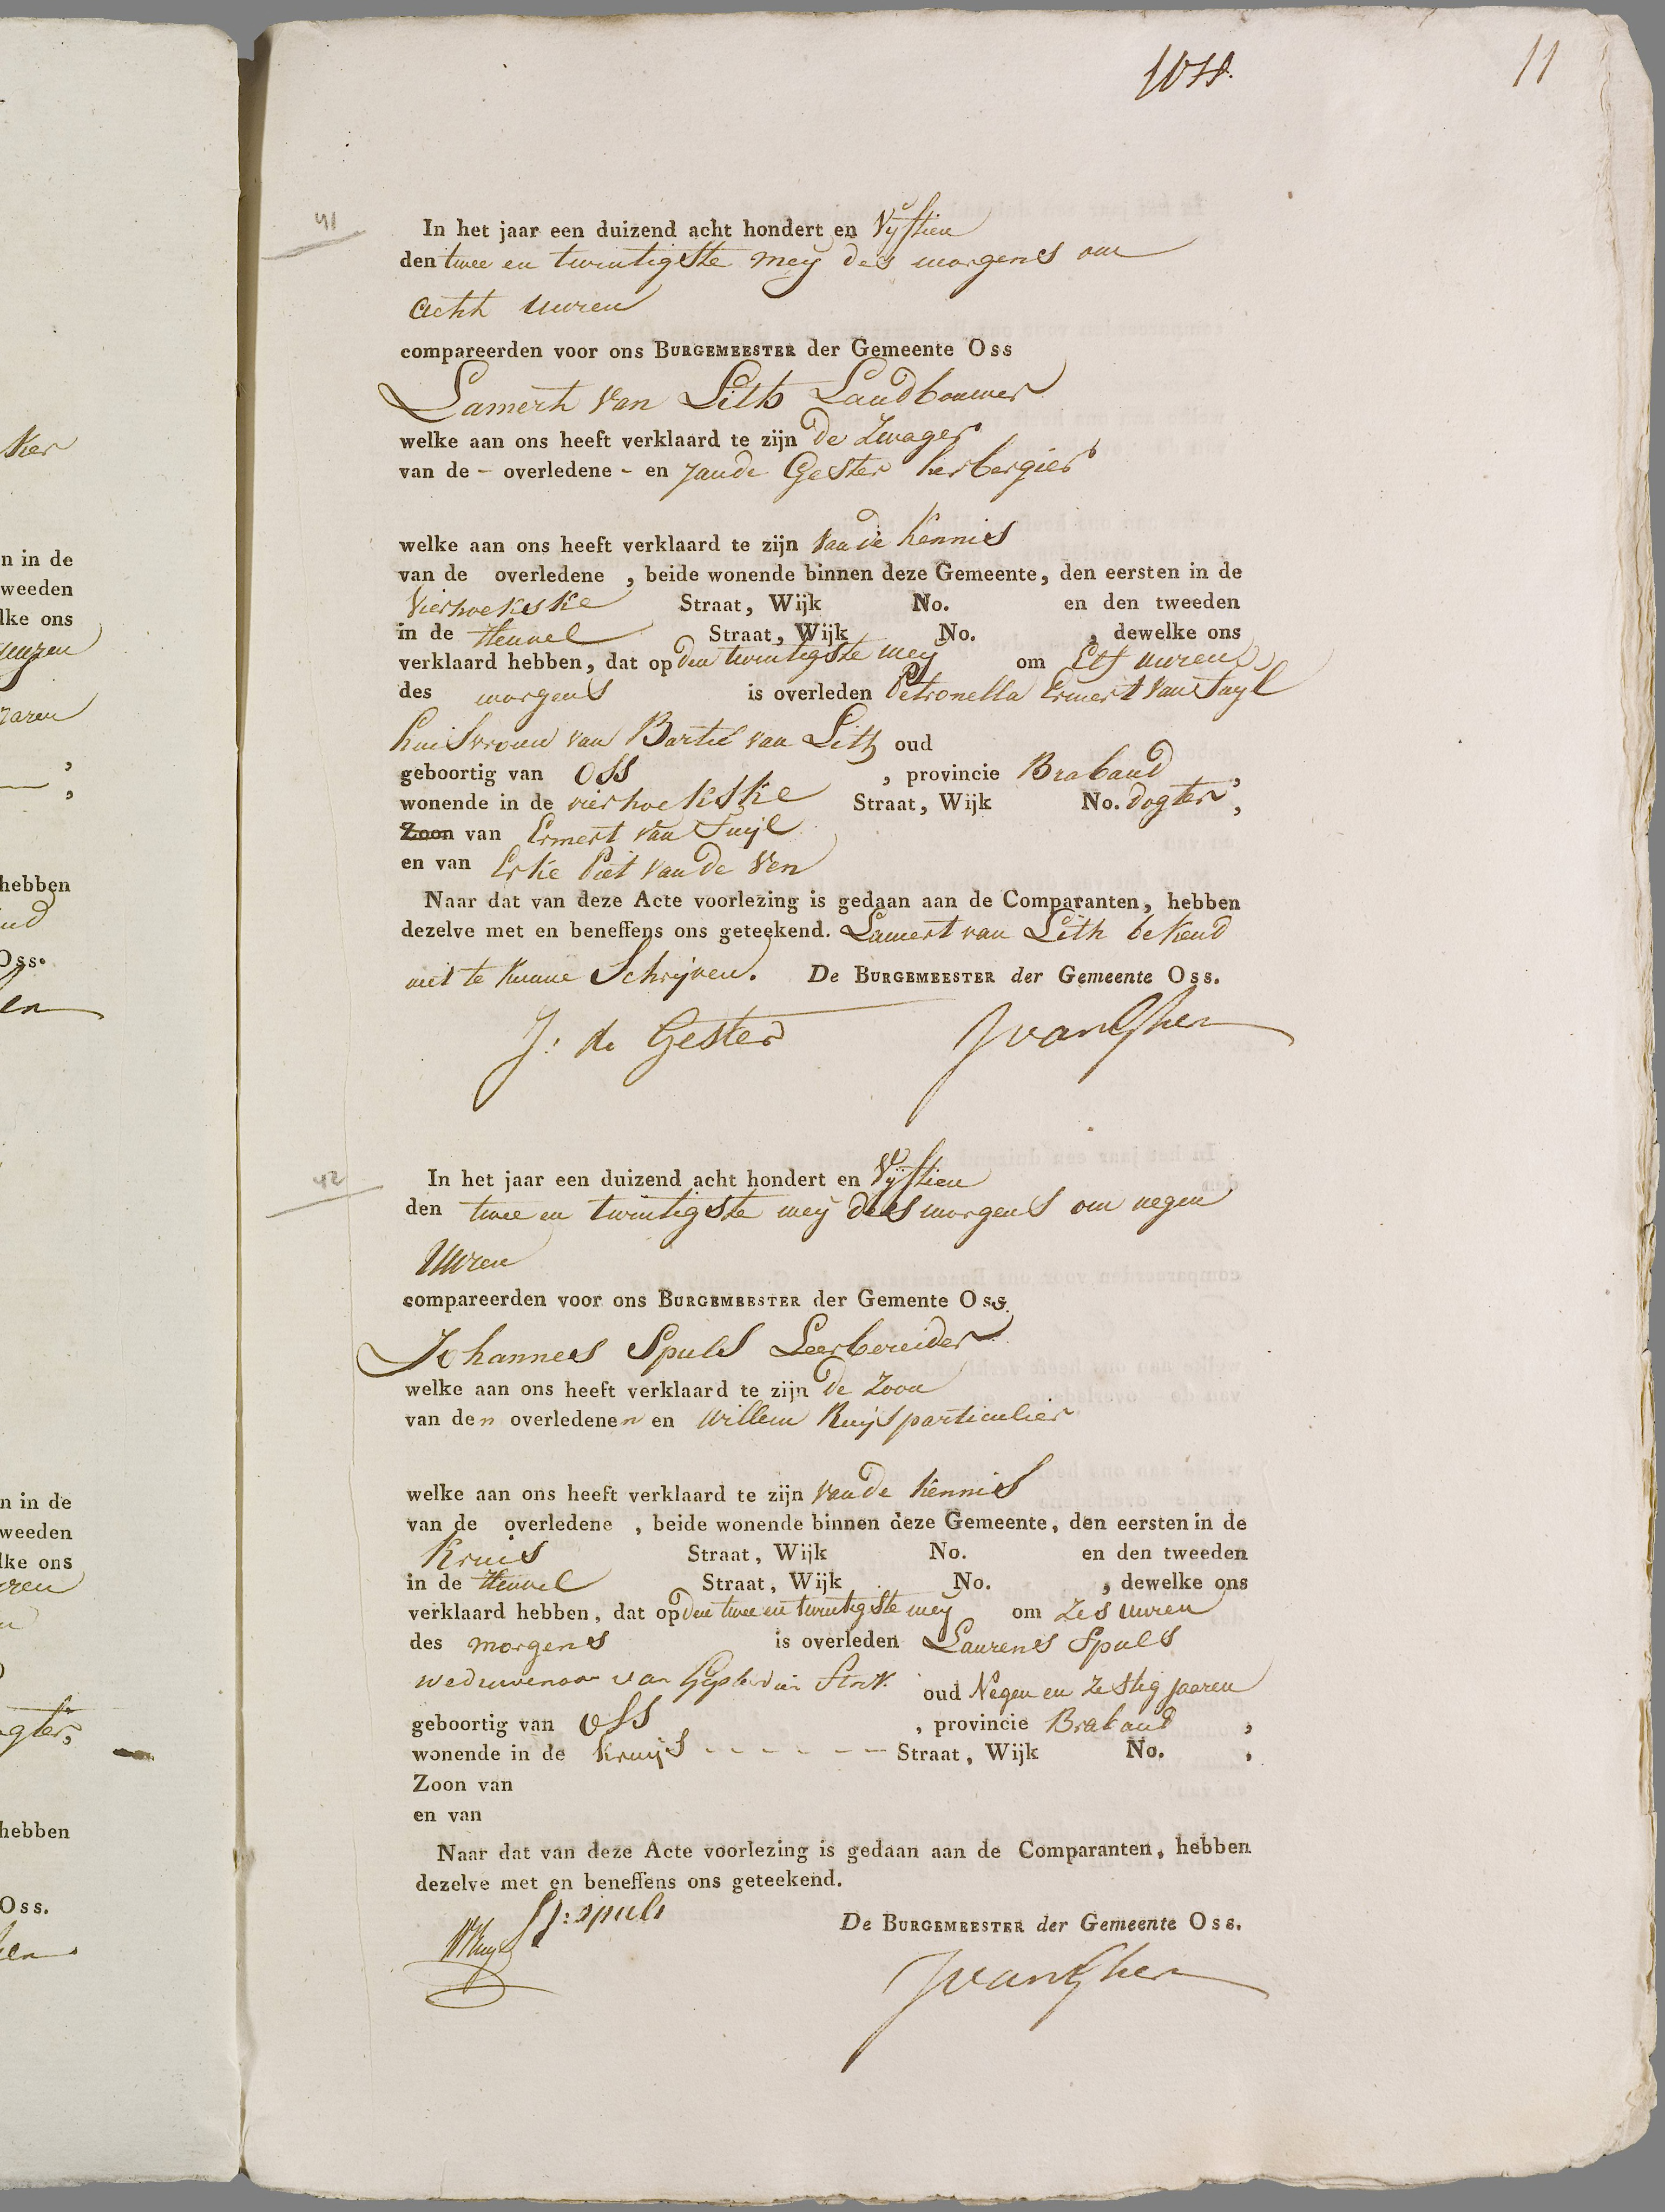 11
41
In het jaar een duizend acht hondert en Vijftien
den twee en twintigste meij des morgens om
acht uuren
compareerden voor ons BURGEMEESTER der Gemeente Oss
Lamert van Lith Landbouwer
welke aan ons heeft verklaard te zijn de Zwager
van de - overledene - en Jan de Gester herbergier
welke aan ons heeft verklaard te zijn van de kennis
van de overledene , beide wonende binnen deze Gemeente, den eersten in de
vierhoekske Straat, Wijk No. en den tweeden
in de Heuvel Straat, Wijk No. , dewelke ons
verklaard hebben, dat op den twintigste meij om Elf uuren
des morgens is overleden Petronella Ermert van Tuyl
huisvrouw van Bartel van Lith oud
geboortig van Oss , provincie Braband ,
wonende in de vierhoekske Straat, Wijk No. dogter ,
Zoon van Ermert van Tuijl
en van Erke Piet van de Ven
Naar dat van deze Acte voorlezing is gedaan aan de Comparanten, hebben
dezelve met en beneffens ons geteekend. Lamert van Lith bekend
niet te kunne Schrijven. De BURGEMEESTER der Gemeente Oss.
J: de Gester
42
In het jaar een duizend acht hondert en Vijftien
den twee en twintigste meij des morgens om negen
Uuren
compareerden voor ons BURGEMEESTER der Gemente Oss.
Johannes Spuls Leerbereider
welke aan ons heeft verklaard te zijn de Zoon
van den overledenen en Willem Ruijs particulier
welke aan ons heeft verklaard te zijn van de kennis
van de overledene , beide wonende binnen deze Gemeente, den eersten in de
Kruis Straat, Wijk No. en den tweeden
in de Heuvel Straat, Wijk No. , dewelke ons
verklaard hebben, dat op den twee en twintigste meij om zes uuren
des morgens is overleden Laurens Spuls
weduwenaar van oud Negen en Zestig jaeren
geboortig van Oss , provincie Braband ,
wonende in de Kruijs - - - - - - Straat, Wijk No. ,
Zoon van
en van
Naar dat van deze Acte voorlezing is gedaan aan de Comparanten, hebben
dezelve met en beneffens ons geteekend.
J: Spuls
WRuys
De BURGEMEESTER der Gemeente Oss.